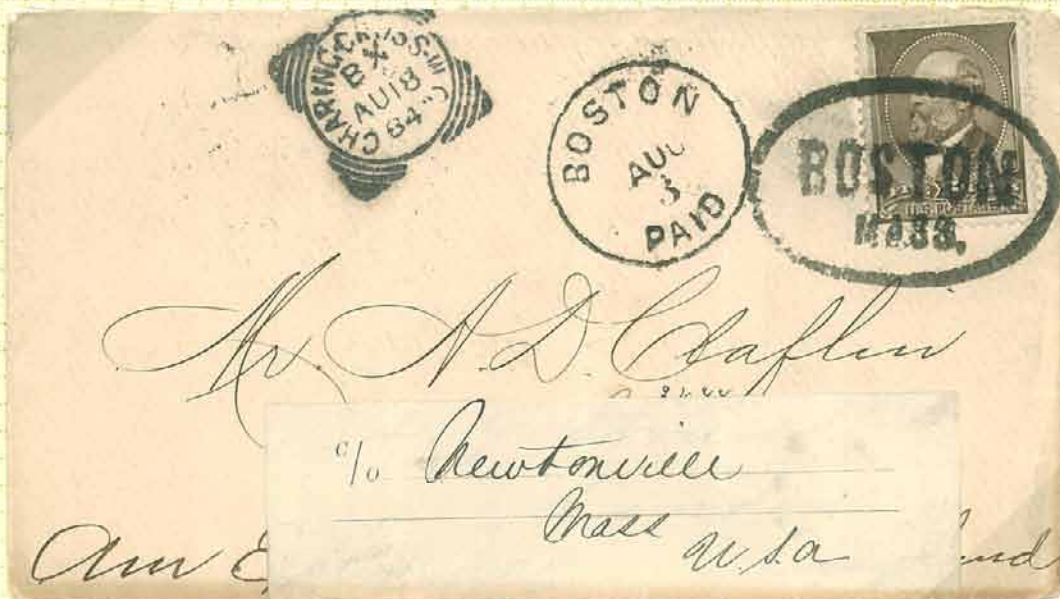 CHARING CROSS.W.C
BX
AU18
84
BOSTON
AUG
3
PAID
BOSTON
MASS.
Mr. A. D. Claflin
c/o Newtonville
Mass
U.S.a
Am